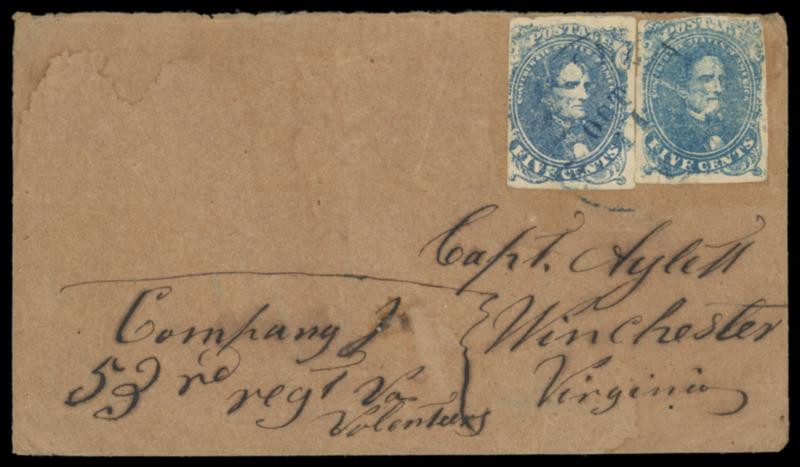 POSTAGE POSTAGE
CONFEDERATE STATES OF AMERICA CONFEDERATE STATES OF AMERICA
FIVE CENTS FIVE CENTS
Capt. Aylett
Winchester
Virginia
Company
53rd regt Va
Volenteers